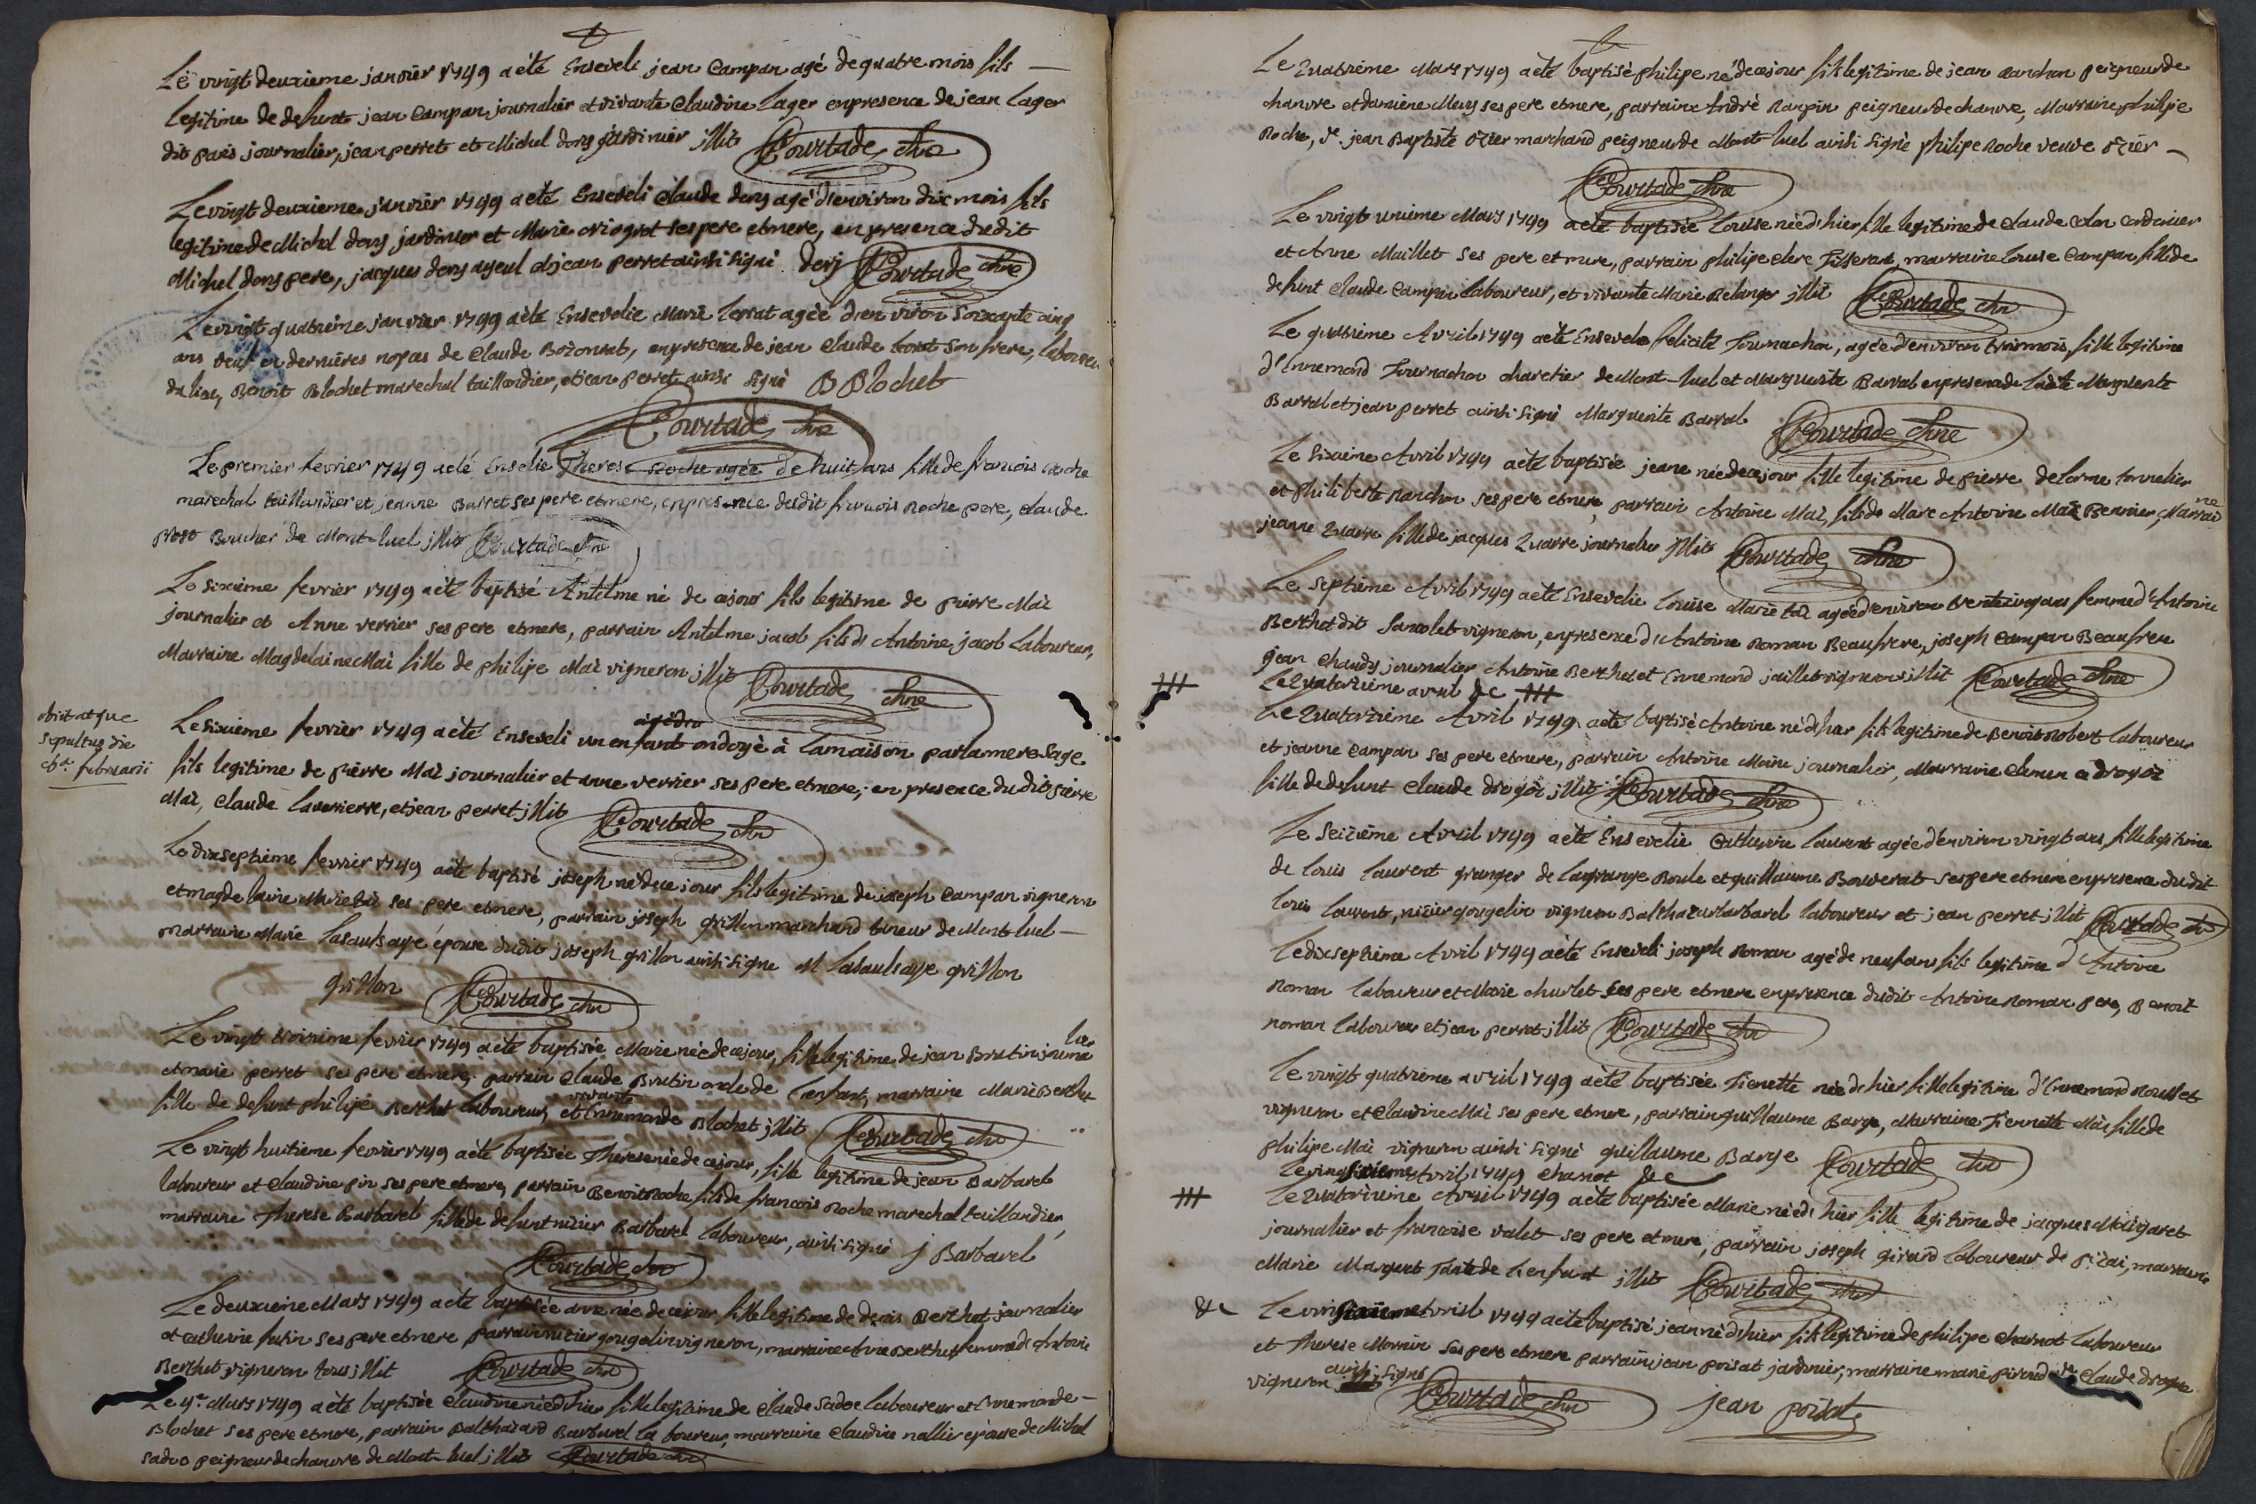 Le vingt deuxieme janvier 1749 a été Enseveli jean Campan agé de quatre mois fils
legitime de defunt jean Campan journalier et vivante Claudine Lager en presence de jean Lager
dit paris journalier, jean perret et Michel dory jardinier jllit Courtade
Le vingt deuxieme janvier 1749 a été Enseveli Claude dory agé d'environ dix mois fils
legitime de Michel dory jardinier et Marie ses pere et mere, en presence dudit
Michel dory pere, jacques dory ayeul et jean perret ainsi signé dorÿ Courtade
Le vingt quatrième janvier 1749 a été Ensevelie Marie terrat agée d'environ soixante cinq
ans en dernières nopces de Claude Bozonnet, en presence de jean Claude son frere, laboureur
du lieu, Benoit Blochet marechal taillandier, et jean perret ainsi signé B Blochet
Courtade
Le premier fevrier 1749 a été Enselie Therese Roche agée de huit ans fille de francois Roche
marechal taillandier et jeanne Barret ses pere et mere, en presence dudit francois Roche pere, Claude
prost Boucher de Mont-luel jllit Courtade
Le sixième fevrier 1749 a été baptisé Antelme né de ce jour fils legitime de pierre Maï
journalier et Anne verrier ses pere et mere, parrain Antelme jacob fils d'Antoine jacob Laboureur,
Marraine Magdelaine Maï fille de philipe Maï vigneron jllit Courtade
obiit atque
sepultus die
februarii
Le sixieme fevrier 1749 a été Enseveli un enfant ondoyé à la maison par la mere sage
fils legitime de pierre Maï journalier et anne verrier ses pere et mere, en presence dudit pierre
Maï, Claude laverrierre, et jean perret jllit Courtade
Le dixseptième fevrier 1749 a été baptisé joseph né de ce jour fils legitime de joseph Campan vigneron
et magdelaine ses pere et mere, parrain joseph grillon marchand taneur de Mont luel
marraine Marie lasaulsaye épouse dudit joseph grillon ainsi signe M lasaulsaye grillon
grillon Courtade
Le vingt troisieme fevrier 1749 a été baptisée Marie née de ce jour, fille legitime de jean Brutin journalier
et marie perret ses pere et mere, parrain Claude Brutin oncle de l'enfant, marraine Marie Berthet
fille de defunt philipe Berthet laboureur, et vivante Ennemonde Blochet jllit Courtade
Le vingt huitième fevrier 1749 a été baptisée Therese née de ce jour, fille legitime de jean Barbarel
laboureur et Claudine pin ses pere et mere, parrain Benoit Roche fils de francois Roche marechal taillandier,
marraine Therese Barbarel fille de defunt nizier Barbarel laboureur, ainsi signé J Barbarel
Courtade
Le deuxieme Mars 1749 a été baptisée anne née de ce jour fille legitime de denis Berthet journalier
et catherine ses pere et mere parrain nizier gougelin vigneron, marraine Anne Berthet femme d'Antoine
Berthet vigneron tous jllit Courtade
Le 4e Mars 1749 a été baptisée Claudine née d'hier fille legitime de Claude Sadoc laboureur et Ennemonde
Blochet ses pere et mere, parrain Balthazard Barbarel laboureur, marraine Claudine nallier epouse de Michel
Sadoc peigneur de chanvre de Mont-luel jllit Courtade
Le Quatrieme Mars 1749 a été baptisé philipe né de ce jour fils legitime de jean peigneur de
chanvre et ses pere et mere, parrain André peigneur de chanvre, Marraine philipe
Roche, Sr. jean Baptiste ozier marchand peigneur de Mont-luel ainsi signé philipe Roche veuve ozier
Courtade
Le vingt unieme Mars 1749 a été baptisée Louise née d'hier fille legitime de Claude Colon Cordonier
et Anne Maillet ses pere et mere, parrain philipe clerc Tisserant, marraine Louise Campan fille de
defunt Claude Campan laboureur, et vivante Marie Belanger jllit Courtade
Le quatrieme Avril 1749 a été Ensevelie felicité Tournachon, agée d'environ trois mois, fille legitime
d'Ennemond Tournachon charetier de Mont-luel et Marguerite Barral en presence de ladite Marguerite
Barral et jean perret ainsi signé Marguerite Barral Courtade
Le sixieme Avril 1749 a été baptisée jeane née de ce jour fille legitime de pierre delorme tonnelier
et philiberte ses pere et mere, parrain Antoine Maï, fils de Marc Antoine Maï, Marraine
jeanne Quarre fille de jacques Quarre journalier jllit Courtade
Le septieme Avril 1749 a été Ensevelie Louise Marie agée d'environ trente cinq ans femme d'Antoine
Berthet dit vigneron, en presence d'Antoine Roman Beaufrere, joseph Campan Beaufrere
jean Chaudy journalier Antoine Berthet et Ennemond jaillet vigneron jllit Courtade
Le Quatorzieme avril &c
Le Quatorzieme Avril 1749 a été baptisé Antoine né d'hier fils legitime de Benoit Robert laboureur
et jeanne Campan ses pere et mere, parrain Antoine Moine journalier, Marraine Clemence drogoi
fille de defunt Claude drogoi jllit Courtade
Le Seizième Avril 1749 a été Ensevelie Catherine laurent agée d'environ vingt ans, fille legitime
de Louis laurent granger de lagrange Boule et guillaume Bouverat ses pere et mere en presence dudit
Louis laurent, nizier gougelin vigneron Balthazar barbarel laboureur et jean perret jllit Courtade
Le dixseptieme Avril 1749 a été Enseveli joseph Roman agé de neuf ans fils legitime d'Antoine
Roman laboureur et Marie churlet ses pere et mere en presence dudit Antoine Roman pere, Benoit
roman laboureur et jean perret jllit Courtade
Le vingt quatrieme avril 1749 a été baptisée Fienette née de hier fille legitime d'Ennemond Rousset
vigneron et Claudine Maï ses pere et mere, parrain guillaume Barge, Marraine Fiennette Maï fille de
philipe Maï vigneron ainsi signé guillaume Barge Courtade
Le vingt sixieme Avril 1749 Charnot &c
Le Quatorzieme Avril 1749 a été baptisée Marie née d'hier fille legitime de jacques Margaret
journalier et francoise valet ses pere et mere, parrain joseph girard laboureur de pizai, marraine
Marie Tante de l'enfant jllit Courtade
&c Le vingt sixieme Avril 1749 a été baptisé jean né d'hier fils legitime de philipe Charnot laboureur
et Therese Morrin ses pere et mere parrain jean poisat jardinier, marraine marie Claude
vigneron ainsi signé
Courtade jean poisat